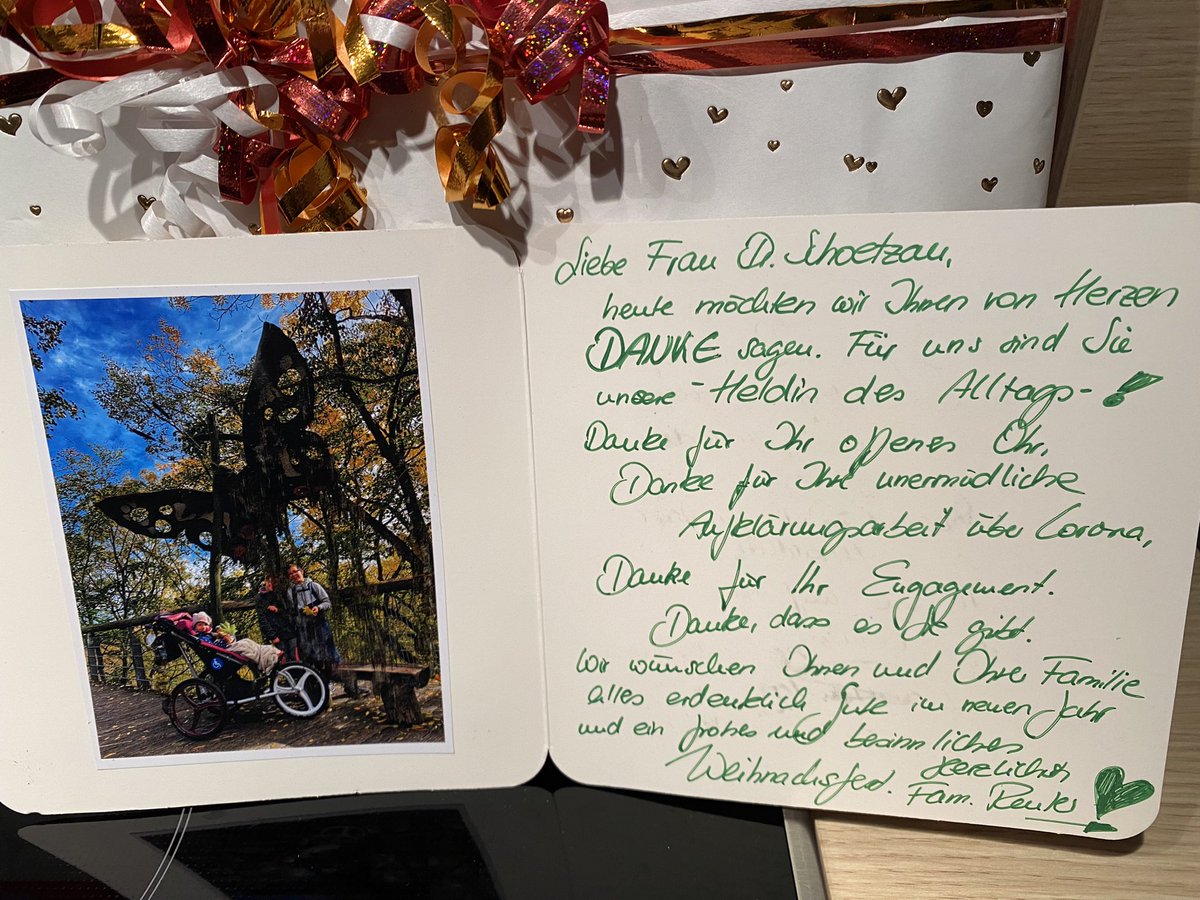 Liebe Frau D. Schoetzau,
heute möchten wir Ihnen von Herzen
DANKE sagen. Für uns sind Sie
unsere - Heldin des Alltags-!
Danke für Ihr offenes Ohr,
Danke für Ihre unermüdliche
Aufklärungsarbeit über Corona,
Danke für Ihr Engagement.
Danke, dass es Sie gibt.
Wir wünschen Ihnen und Ihrer Familie
alles erdenklich Gute im neuen Jahr
und ein frohes und besinnliches
Weihnachtsfest. Herzlichst
Fam.